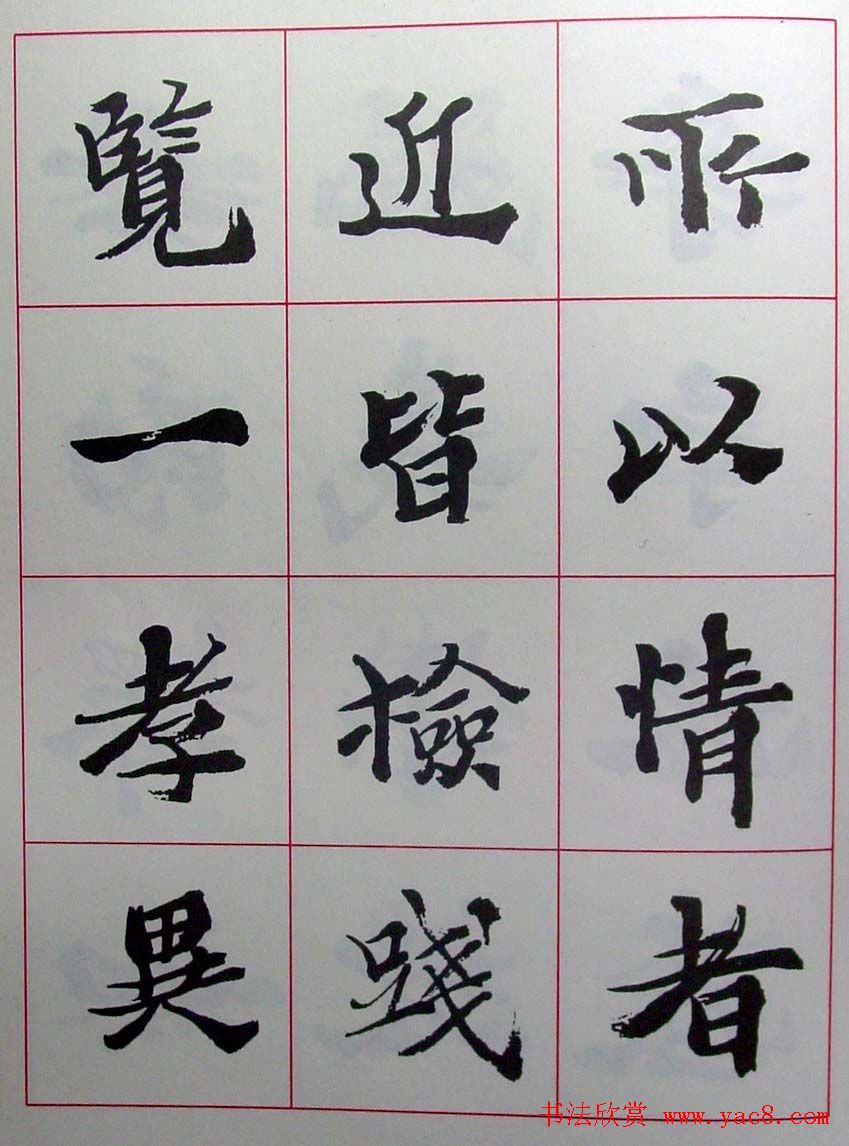 所以情者
近皆檢踐
覽一孝異
书法欣赏 www.yac8.com